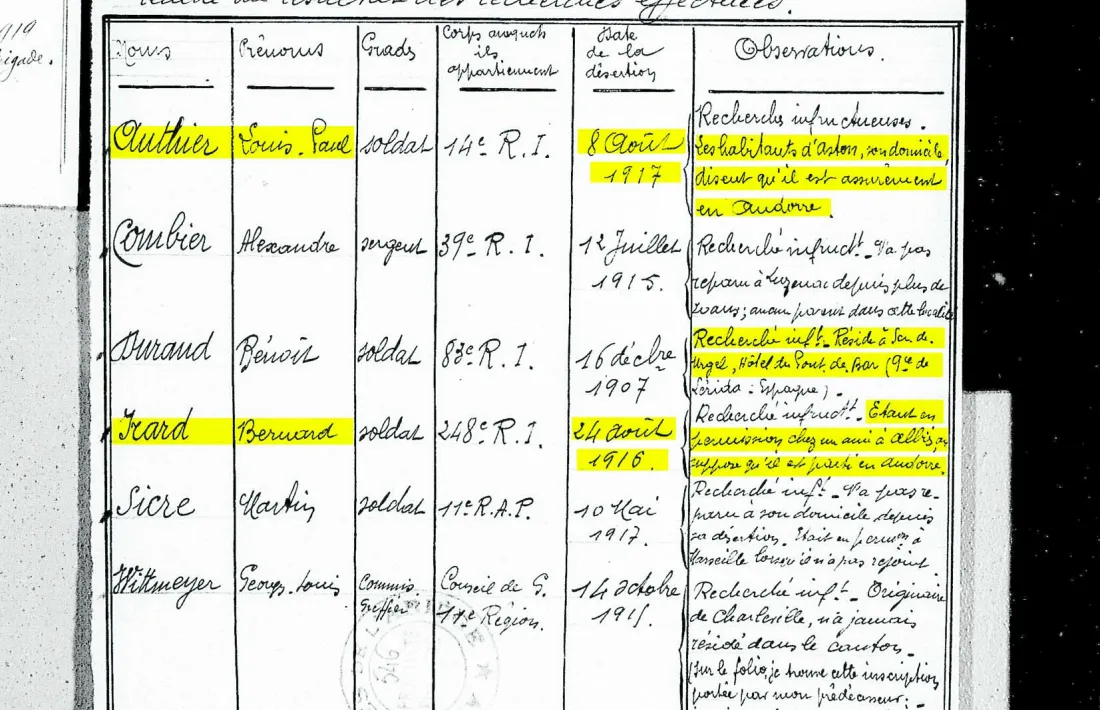 1919
rigade.
relatif au résultat des recherches effectuées.
Noms
Prénoms
Grads
Corps auxquels
ils
appartiennent
Date
de la
désertion
Observations.
Authier
Louis-Paul
soldat
14e R.I.
8 Août
1917
Recherches infructueuses.
Les habitants d'Aston, son domicile,
disent qu'il est assurément
en Andorre.
Combier
Alexandre
sergent
39e R.I.
12 Juillet
1915.
Recherché infructt - N'a pas
reparu à Luzenac depuis plus de
2 ans; aucun parent dans cette localité
Durand
Bénoit
soldat
83e R.I.
16 décbre
1907
Recherché inft - Réside à Seu de
Urgel, Hôtel du Pont de Bar (9ce de
Lérida - Espagne)
Icard
Bernard
soldat
248e R.I.
24 août
1916.
Recherché infructt - Etant en
permission chez un ami à Albiès, on
suppose qu'il est parti en Andorre.
Sicre
Martin
soldat
11e R.A.P.
10 Mai
1917.
Recherché inft - N'a pas re-
paru à son domicile depuis
sa désertion. Etait en permon à
Marseille lorsqu'il n'a pas rejoint.
Wittmeyer
Georges-Louis
Commis
Greffier
Conseil de G.
11e Région.
14 octobre
1915.
Recherché inft - Originaire
de Charleville, n'a jamais
résidé dans le canton -
(sur le folio, je trouve cette inscription
portée par mon prédécesseur: -